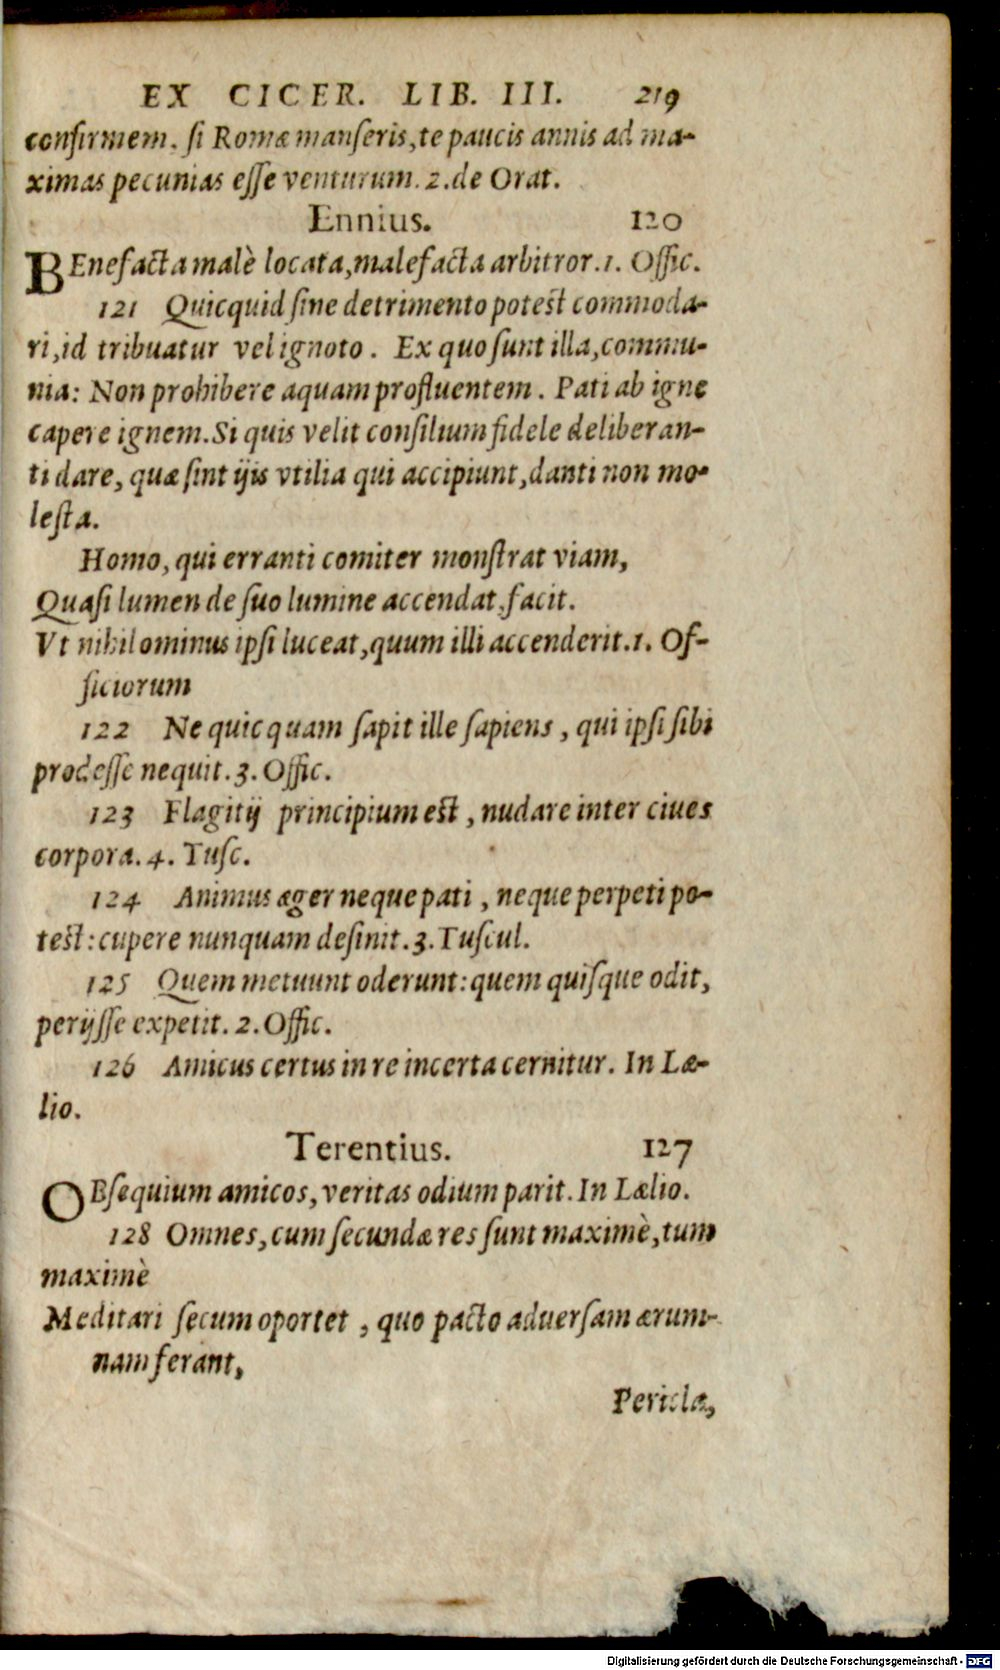 EX CICER. LIB. III. 219
confirmem. ſi Romæ manſeris, te paucis annis ad ma-
ximas pecunias eſſe venturum. 2. de Orat.
Ennius. 120
BEnefacta malè locata, malefacta arbitror. 1. Offic.
121 Quicquid ſine detrimento poteſt commoda-
ri, id tribuatur vel ignoto. Ex quo ſunt illa, commu-
nia: Non prohibere aquam profluentem. Pati ab igne
capere ignem. Si quis velit conſilium fidele deliberan-
ti dare, quæ ſint ijs vtilia qui accipiunt, danti non mo-
leſta.
Homo, qui erranti comiter monſtrat viam,
Quaſi lumen de ſuo lumine accendat, facit.
Vt nihilominus ipſi luceat, quum illi accenderit. 1. Of-
ficiorum
122 Ne quicquam ſapit ille ſapiens, qui ipſi ſibi
prodeſſe nequit. 3. Offic.
123 Flagitij principium eſt, nudare inter ciues
corpora. 4. Tuſc.
124 Animus æger neque pati, neque perpeti po-
teſt: cupere nunquam deſinit. 3. Tuſcul.
125 Quem metuunt oderunt: quem quiſque odit,
perijſſe expetit. 2. Offic.
126 Amicus certus in re incerta cernitur. In Læ-
lio.
Terentius. 127
OBſequium amicos, veritas odium parit. In Lælio.
128 Omnes, cum ſecundæ res ſunt maximè, tum
maximè
Meditari ſecum oportet, quo pacto aduerſam ærum-
nam ferant,
Pericla,
Digitalisierung gefördert durch die Deutsche Forschungsgemeinschaft - DFG